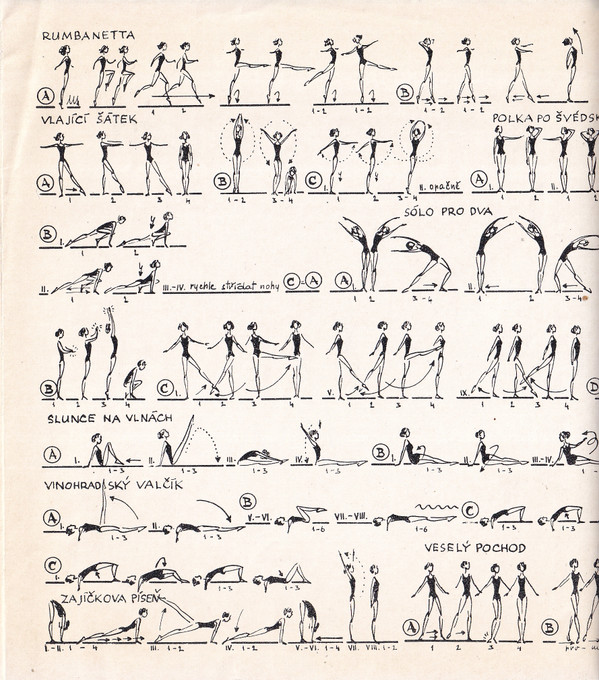 RUMBANETTA
A 1 2 1-2 1-2 B 1-2 1-2
VLAJÍCÍ ŠÁTEK POLKA PO ŠVÉDSK
A 1 2 3 4 B 1-2 3-4 C I. 1 2 3-4 II. opačně A I. 1 2 II. 1 2
B I. 1 2 SÓLO PRO DVA
II. 1 2 III.-IV. rychle střídat nohy C=A A I. 1 2 3-4 II. 1 2 3-4
B 1 2 3 4 C I. 1 2 3 4 V. 1 2 3 4 IX. 1 2 3 4 D
SLUNCE NA VLNÁCH
A I. 1-3 II. 1-3 III. 1-3 IV. 1-3 B I. 1-3 II. 1-3 III.-IV. 1-3
VINOHRADSKÝ VALČÍK
A I. 1-3 II. 1-3 B V.-VI. 1-6 VII.-VIII. 1-6 C I. 1-3 1-3
C I. 1-3 1-3 1-3
VESELÝ POCHOD
ZAJÍČKOVA PÍSEŇ
I.-II. 1-4 III. 1-2 IV. 1-2 V.-VI. 1-4 VII. VIII. 1-2 A 1 2 3 4 B